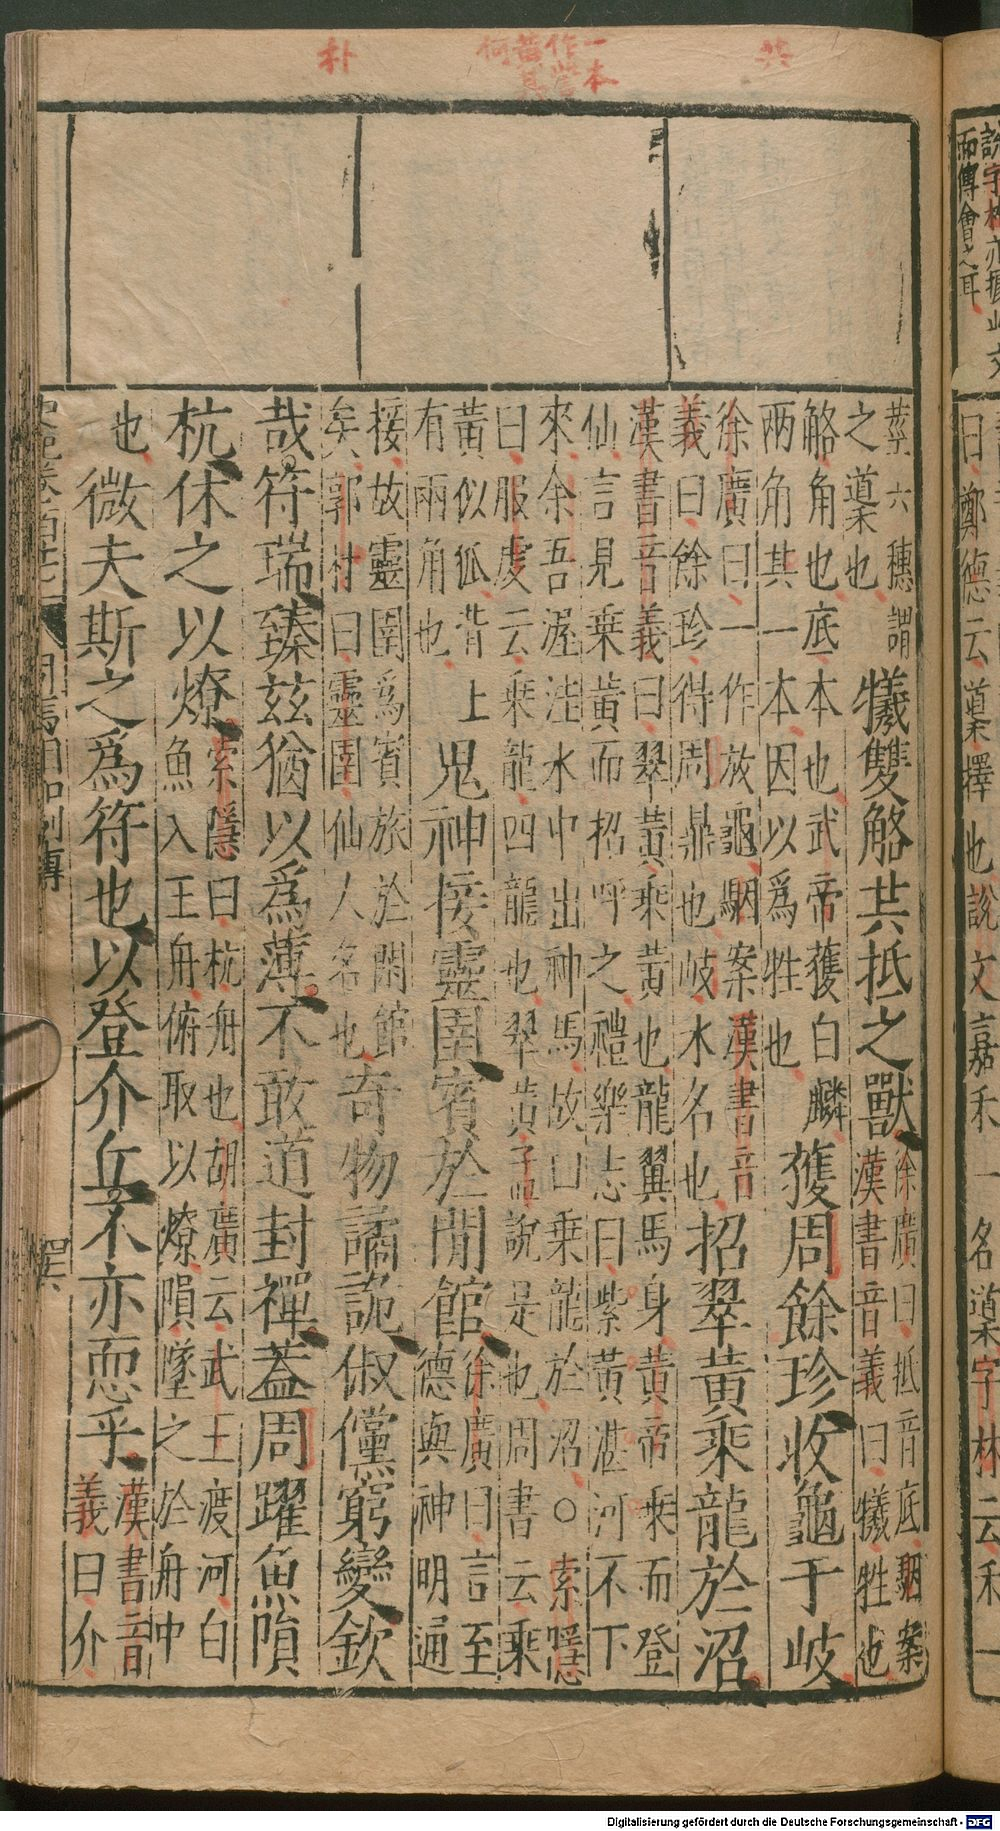 共
一本
作嘗
黃
何
朴
說字林亦據此文
而傳會之耳
曰鄭德云䆃擇也說文嘉禾一名䆃字林云禾一
莖六穗謂
之䆃也
犧雙觡共抵之獸
徐廣曰抵音底駰案
漢書音義曰犧牲也
觡角也底本也武帝獲白麟
兩角其一本因以爲牲也
獲周餘珍收龜于岐
徐廣曰一作放龜駰案漢書音
義曰餘珍得周鼎也岐水名也
招翠黃乘龍於沼
漢書音義曰翠黃乘黃也龍翼馬身黃帝乘而登
仙言見乘黃而招呼之禮樂志曰紫黃湛河不下
來余吾渥洼水中出神馬故曰乘龍於沼○索隱
曰服虔云乘龍四龍也翠黃孟說是也周書云乘
黃似狐背上
有兩角也
鬼神接靈圉賓於閒館
徐廣曰言至
德與神明通
接故靈圉爲賓旅於閒館
矣郭村曰靈圉仙人名也
奇物譎詭俶儻窮變欽
哉符瑞臻兹猶以爲薄不敢道封禪蓋周躍魚隕
杭休之以燎
索隱曰杭舟也胡廣云武王渡河白
魚入王舟俯取以燎隕墜之於舟中
也
微夫斯之爲符也以登介丘不亦恧乎
漢書音
義曰介
史記卷百十七
司馬相如列傳
四六
Digitalisierung gefördert durch die Deutsche Forschungsgemeinschaft - DFG